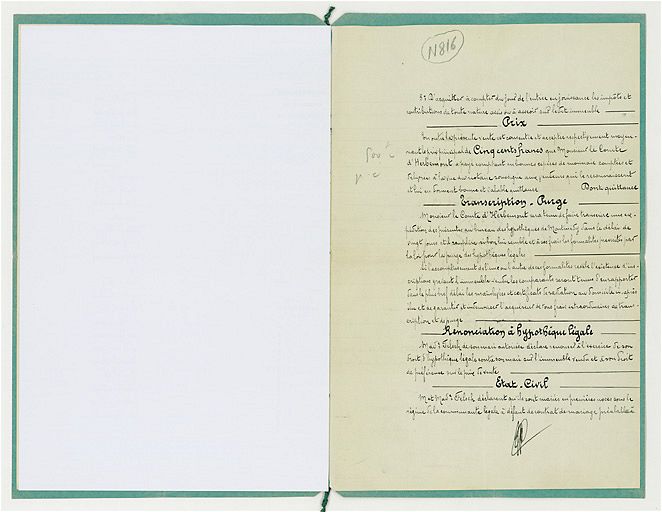 N 816
3º D'acquitter à compter du jour de l'entrée en jouissance les impôts et
contributions de toute nature assis ou à asseoir sur ledit immeuble
Prix
En outre la présente vente est consentie et acceptée respectivement moyen-
nant le prix principal de Cinq cents francs que Monsieur le Comte
d'Herbemont a payé comptant en bonnes espèces de monnaie comptées et
délivrées à la vue du notaire soussigné aux vendeurs qui le reconnaissent
et lui en donnent bonne et valable quittance Dont quittance
500
Transcription - Purge
Monsieur le Comte d'Herbemont sera tenu de faire transcrire une ex-
pédition des présentes au bureau des hypothèques de Montmédy dans le délai de
vingt jours et à remplir si bon lui semble et à ses frais les formalités prescrites par
la loi pour la purge des hypothèques légales
Si l'accomplissement de l'une ou l'autre de ces formalités révèle l'existence d'ins-
criptions grevant l'immeuble vendu les comparants seront tenus d'en rapporter
dans le plus bref délai les mainlevées et certificats de radiation au domicile ci-après
élu et de garantir et indemniser l'acquéreur de tous frais extraordinaires de trans-
cription et de purge
Renonciation à hypothèque légale
Made Felsch de son mari autorisée déclare renoncer à l'exercice de son
droit d'hypothèque légale contre son mari sur l'immeuble vendu et à son droit
de préférence sur le prix de vente
Etat-Civil
M. et Made Felsch déclarent qu'ils sont mariés en premières noces sous le
régime de la communauté légale à défaut de contrat de mariage préalable à